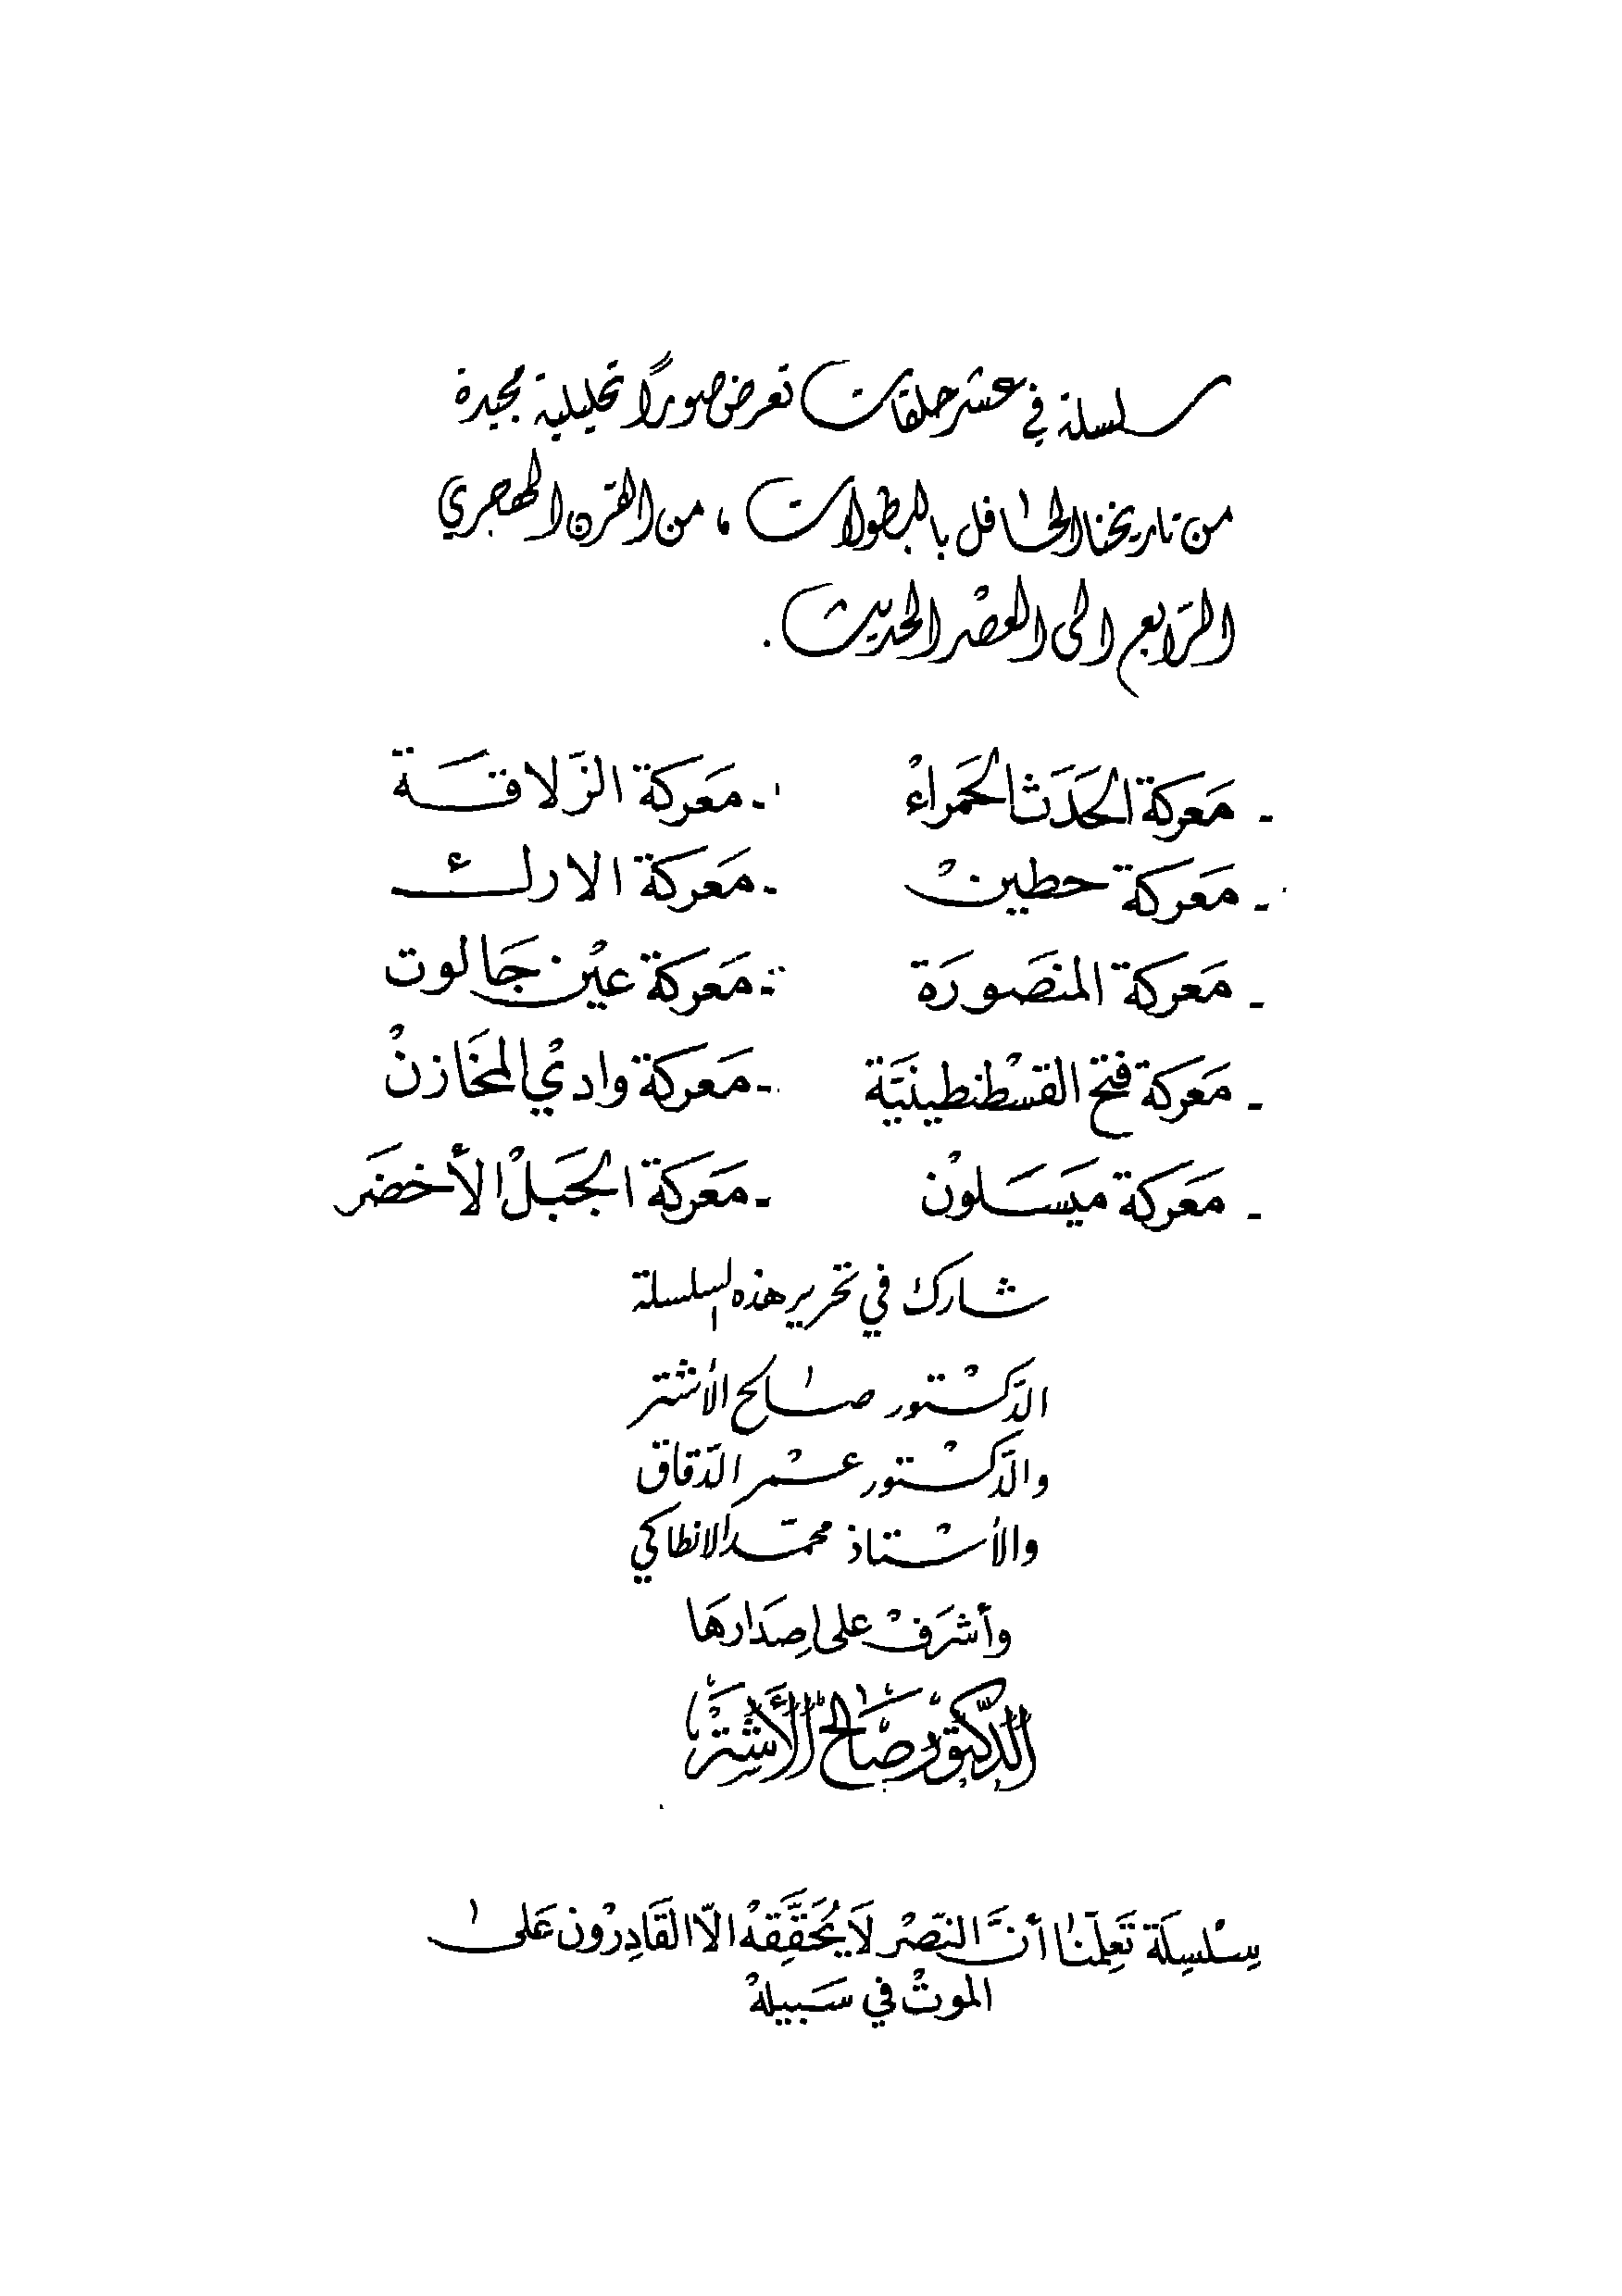 سلسلة في عشر حلقات تعرض صورًا تحليلية مجيدة
من تاريخنا الحافل بالبطولات ، من القرن الهجري
الرابع الى العصر الحديث .
- معركة الحدث الحمراء
- معركة الزلاقة
- معركة حطين
- معركة الارك
- معركة المنصورة
- معركة عين جالوت
- معركة فتح القسطنطينية
- معركة وادي المخازن
- معركة ميسلون
- معركة الجبل الأخضر
شارك في تحرير هذه السلسلة
الدكتور صالح الأشتر
والدكتور عمر الدقاق
والأستاذ محمد الانطاكي
وأشرف على إصدارها
الدكتور صالح الأشتر
سلسلة تعلمنا أن النصر لا يحققه الا القادرون على
الموت في سبيله